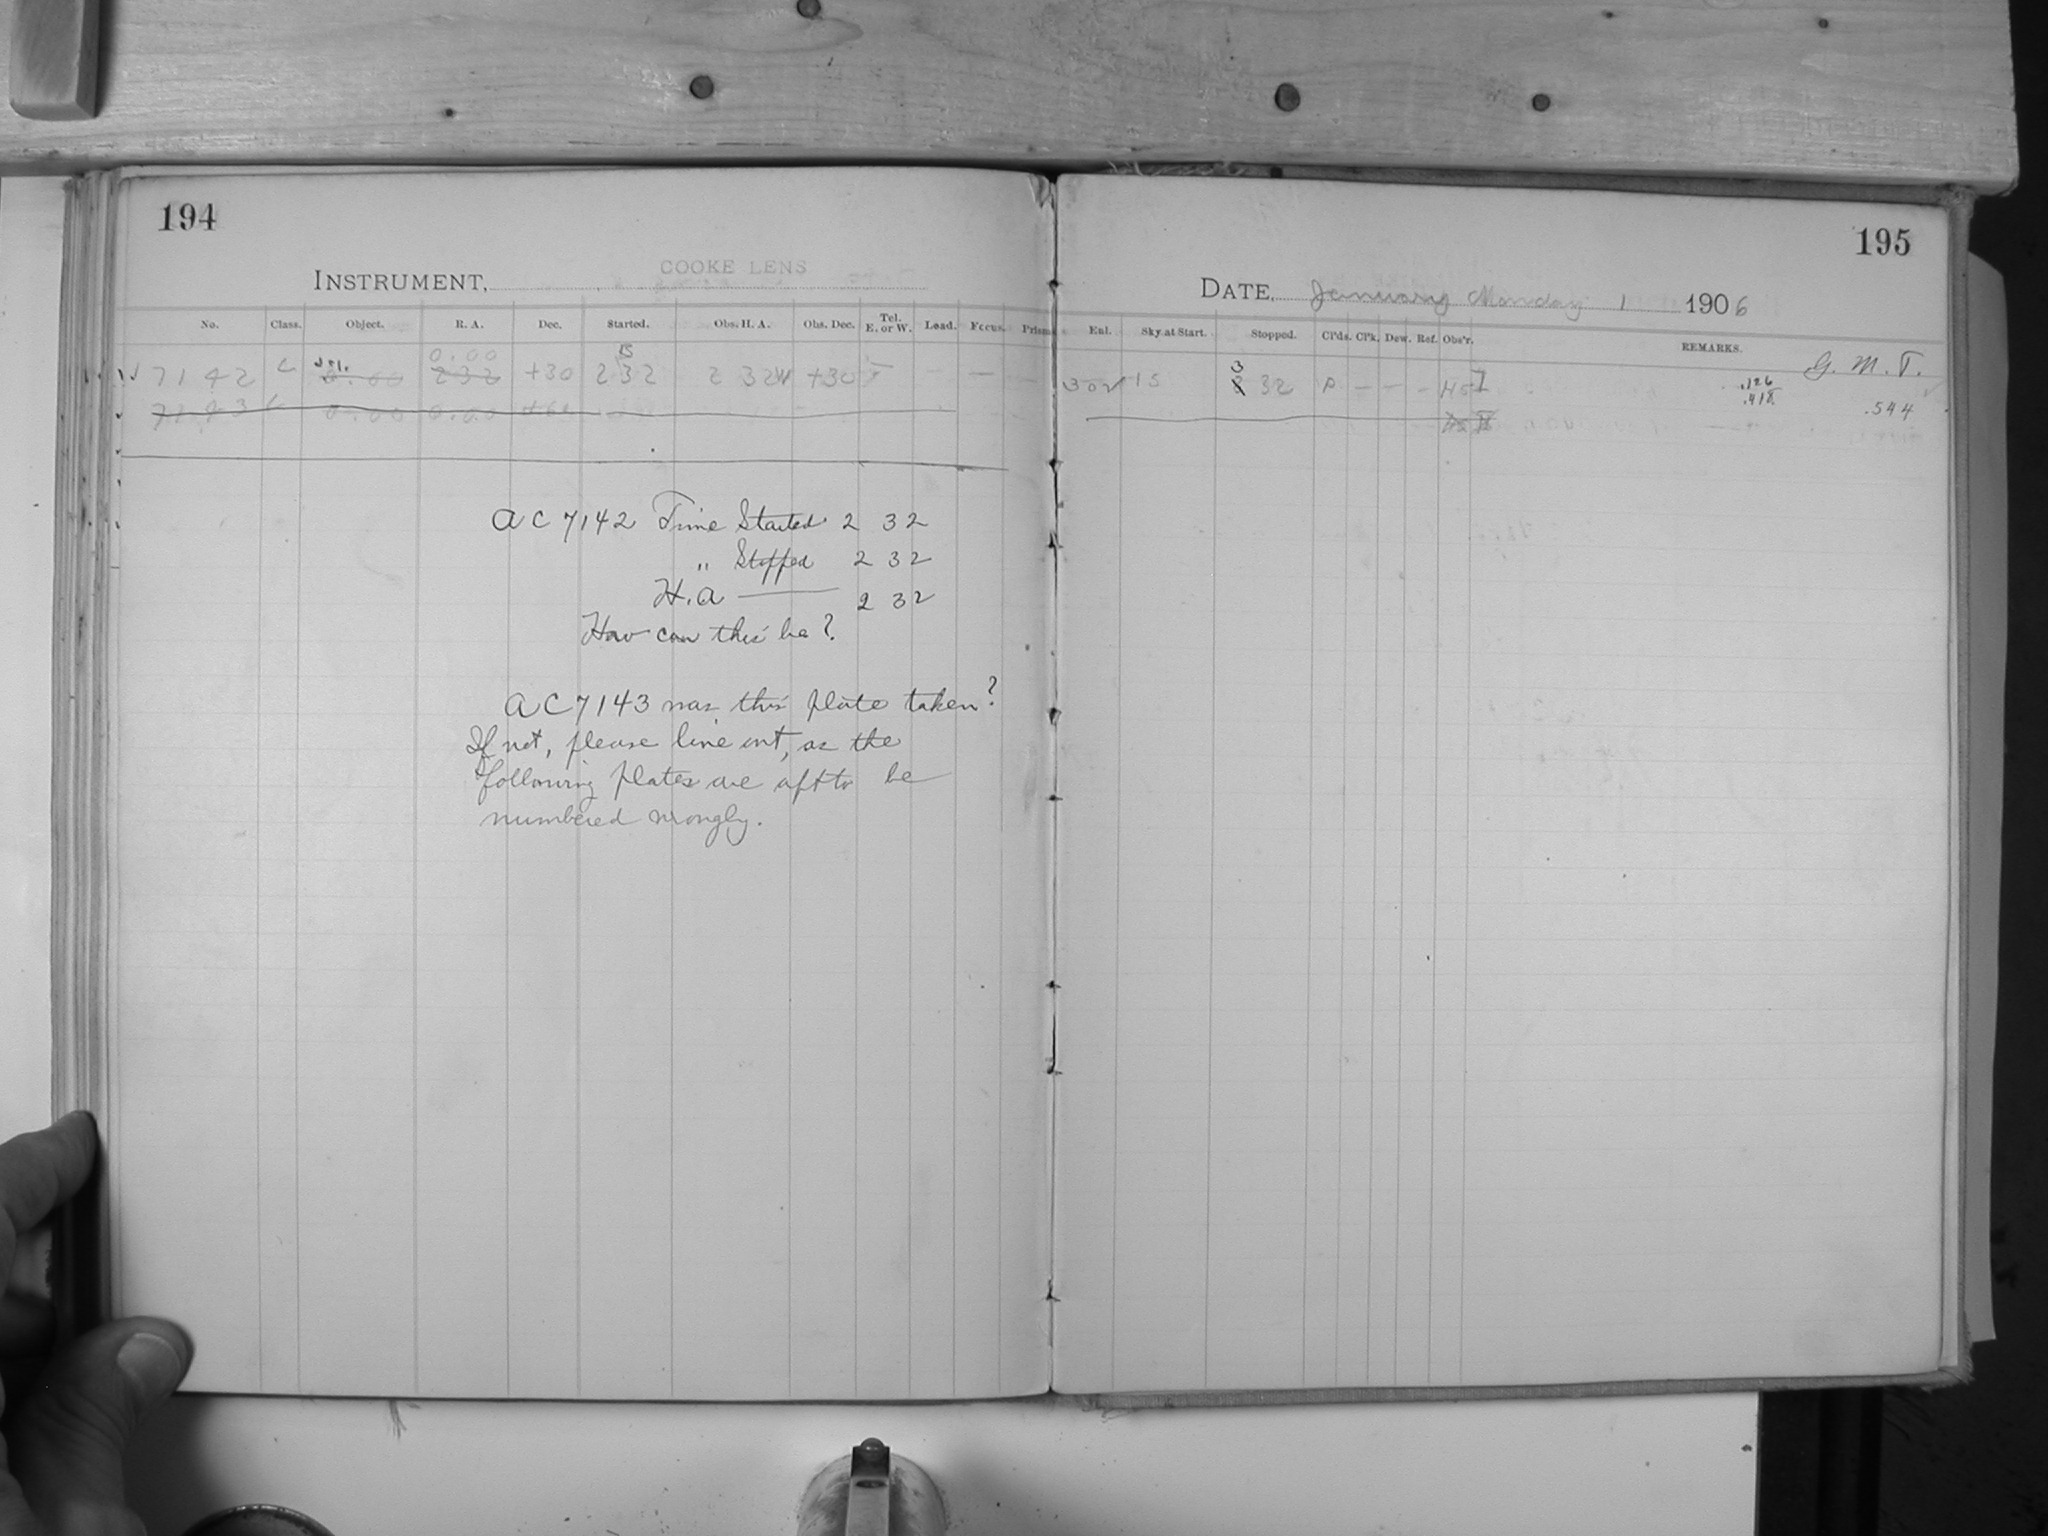 194
195
COOKE LENS
INSTRUMENT,
DATE, January Monday 1 1906
No. Class. Object. R. A. Dec. Started. Obs. H. A. Obs. Dec. Tel. E. or W. Load. Focus. Prism
Exl. Sky at Start. Stopped. Cl'ds. Cl'k. Dew. Ref. Obs'r. REMARKS.
G. M. T.
0.00
7142 C 0.00 232 +30 2 32 2 32W +30
3
15 2 32 P — — — HS I .126
.418 .544
7143 C 0.00 0.00 +60
AC 7142 Time Started 2 32
" Stopped 2 32
H.A — 2 32
How can this be?
AC 7143 was this plate taken?
If not, please line out, as the
following plates are apt to be
numbered wrongly.